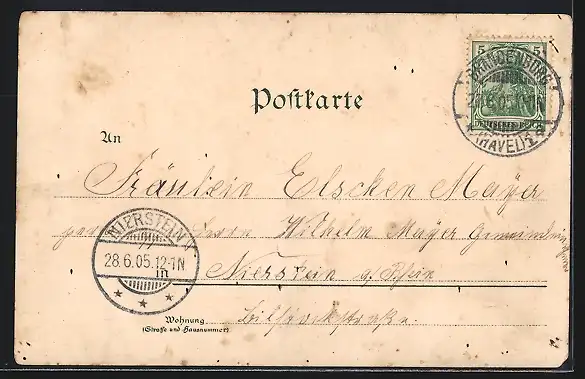 Postkarte
5 5
DEUTSCHES REICH
BRANDENBURG
27.6.05. 1N
(HAVEL)1
An
Fräulein Elschen Mayer
per Herrn Wilhelm Mayer
NIERSTEIN
28.6.05.12-1N
in Nierstein a/Rhein
Wohnung
(Straße und Hausnummer)